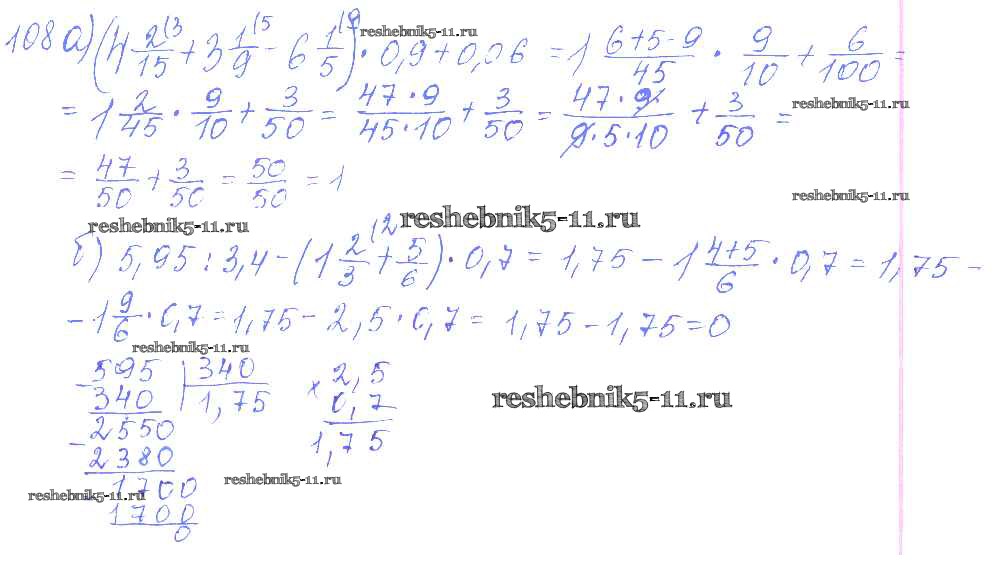 108 а) (4 2/15 (3 + 3 1/9 (5 - 6 1/5 (9) · 0,9 + 0,06 = 1 (6+5-9)/45 · 9/10 + 6/100 =
reshebnik5-11.ru
= 1 2/45 · 9/10 + 3/50 = (47·9)/(45·10) + 3/50 = (47·9)/(9·5·10) + 3/50 =
reshebnik5-11.ru
= 47/50 + 3/50 = 50/50 = 1
reshebnik5-11.ru
reshebnik5-11.ru reshebnik5-11.ru
б) 5,95 : 3,4 - (1 2/3 (2 + 5/6) · 0,7 = 1,75 - 1 (4+5)/6 · 0,7 = 1,75 -
- 1 9/6 · 0,7 = 1,75 - 2,5 · 0,7 = 1,75 - 1,75 = 0
reshebnik5-11.ru
- 595 | 340 × 2,5
340 | 1,75 0,7
reshebnik5-11.ru
- 2550 1,75
2380
reshebnik5-11.ru
- 1700
reshebnik5-11.ru
1700
0